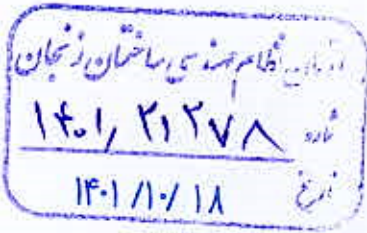 سازمان نظام مهندسی ساختمان زنجان
شماره ۱۴۰۱/ ۲۱۲۷۸
تاریخ ۱۴۰۱/۱۰/۱۸